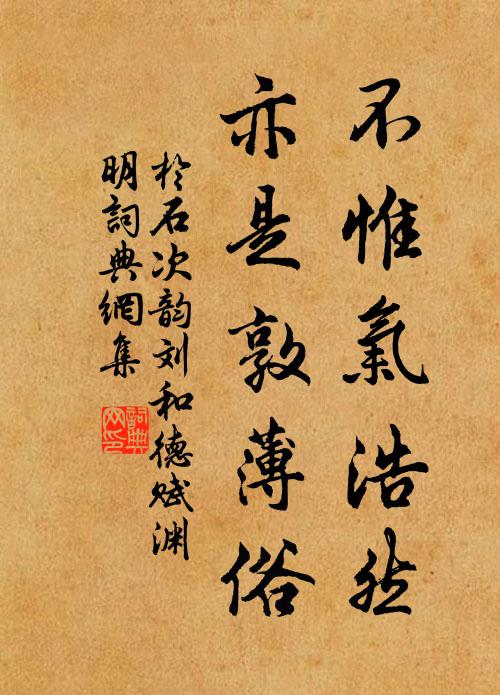 不惟氣浩然
亦是敦薄俗
於石次韵刘和德赋渊
明詞典網集
詞典
网印